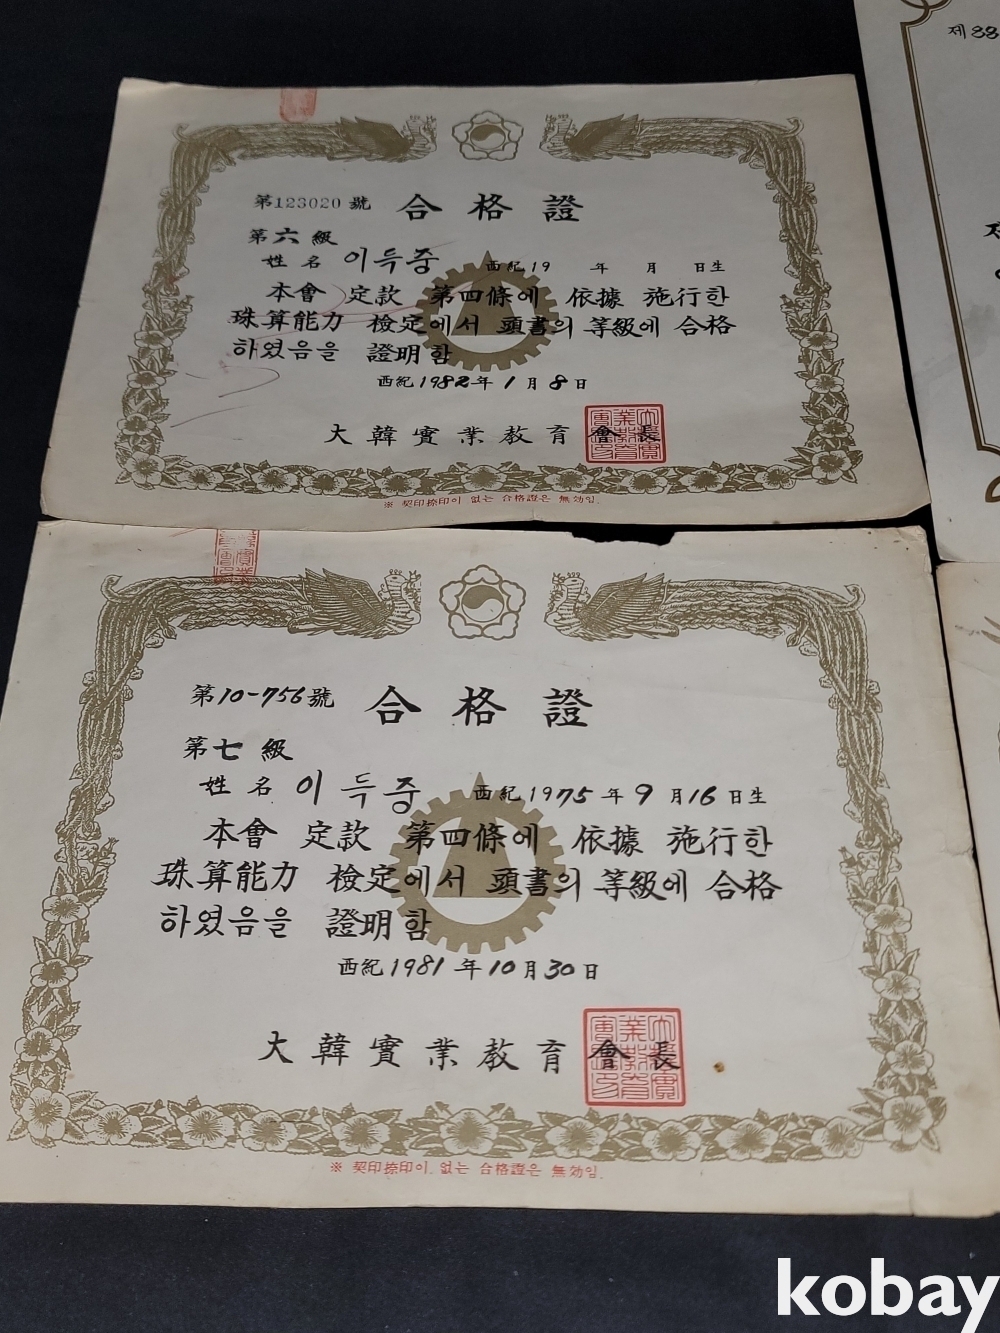 第123020號 合格證
第六級
姓名 이득중 西紀19 年 月 日生
本會 定款 第四條에 依據 施行한
珠算能力 檢定에서 頭書의 等級에 合格
하였음을 證明함
西紀1982年1月8日
大韓實業教育會長
※ 契印捺印이 없는 合格證은 無効임.
第10-756號 合格證
第七級
姓名 이득중 西紀1975年9月16日生
本會 定款 第四條에 依據 施行한
珠算能力 檢定에서 頭書의 等級에 合格
하였음을 證明함
西紀1981年10月30日
大韓實業教育會長
※ 契印捺印이 없는 合格證은 無効임.
제88
kobay